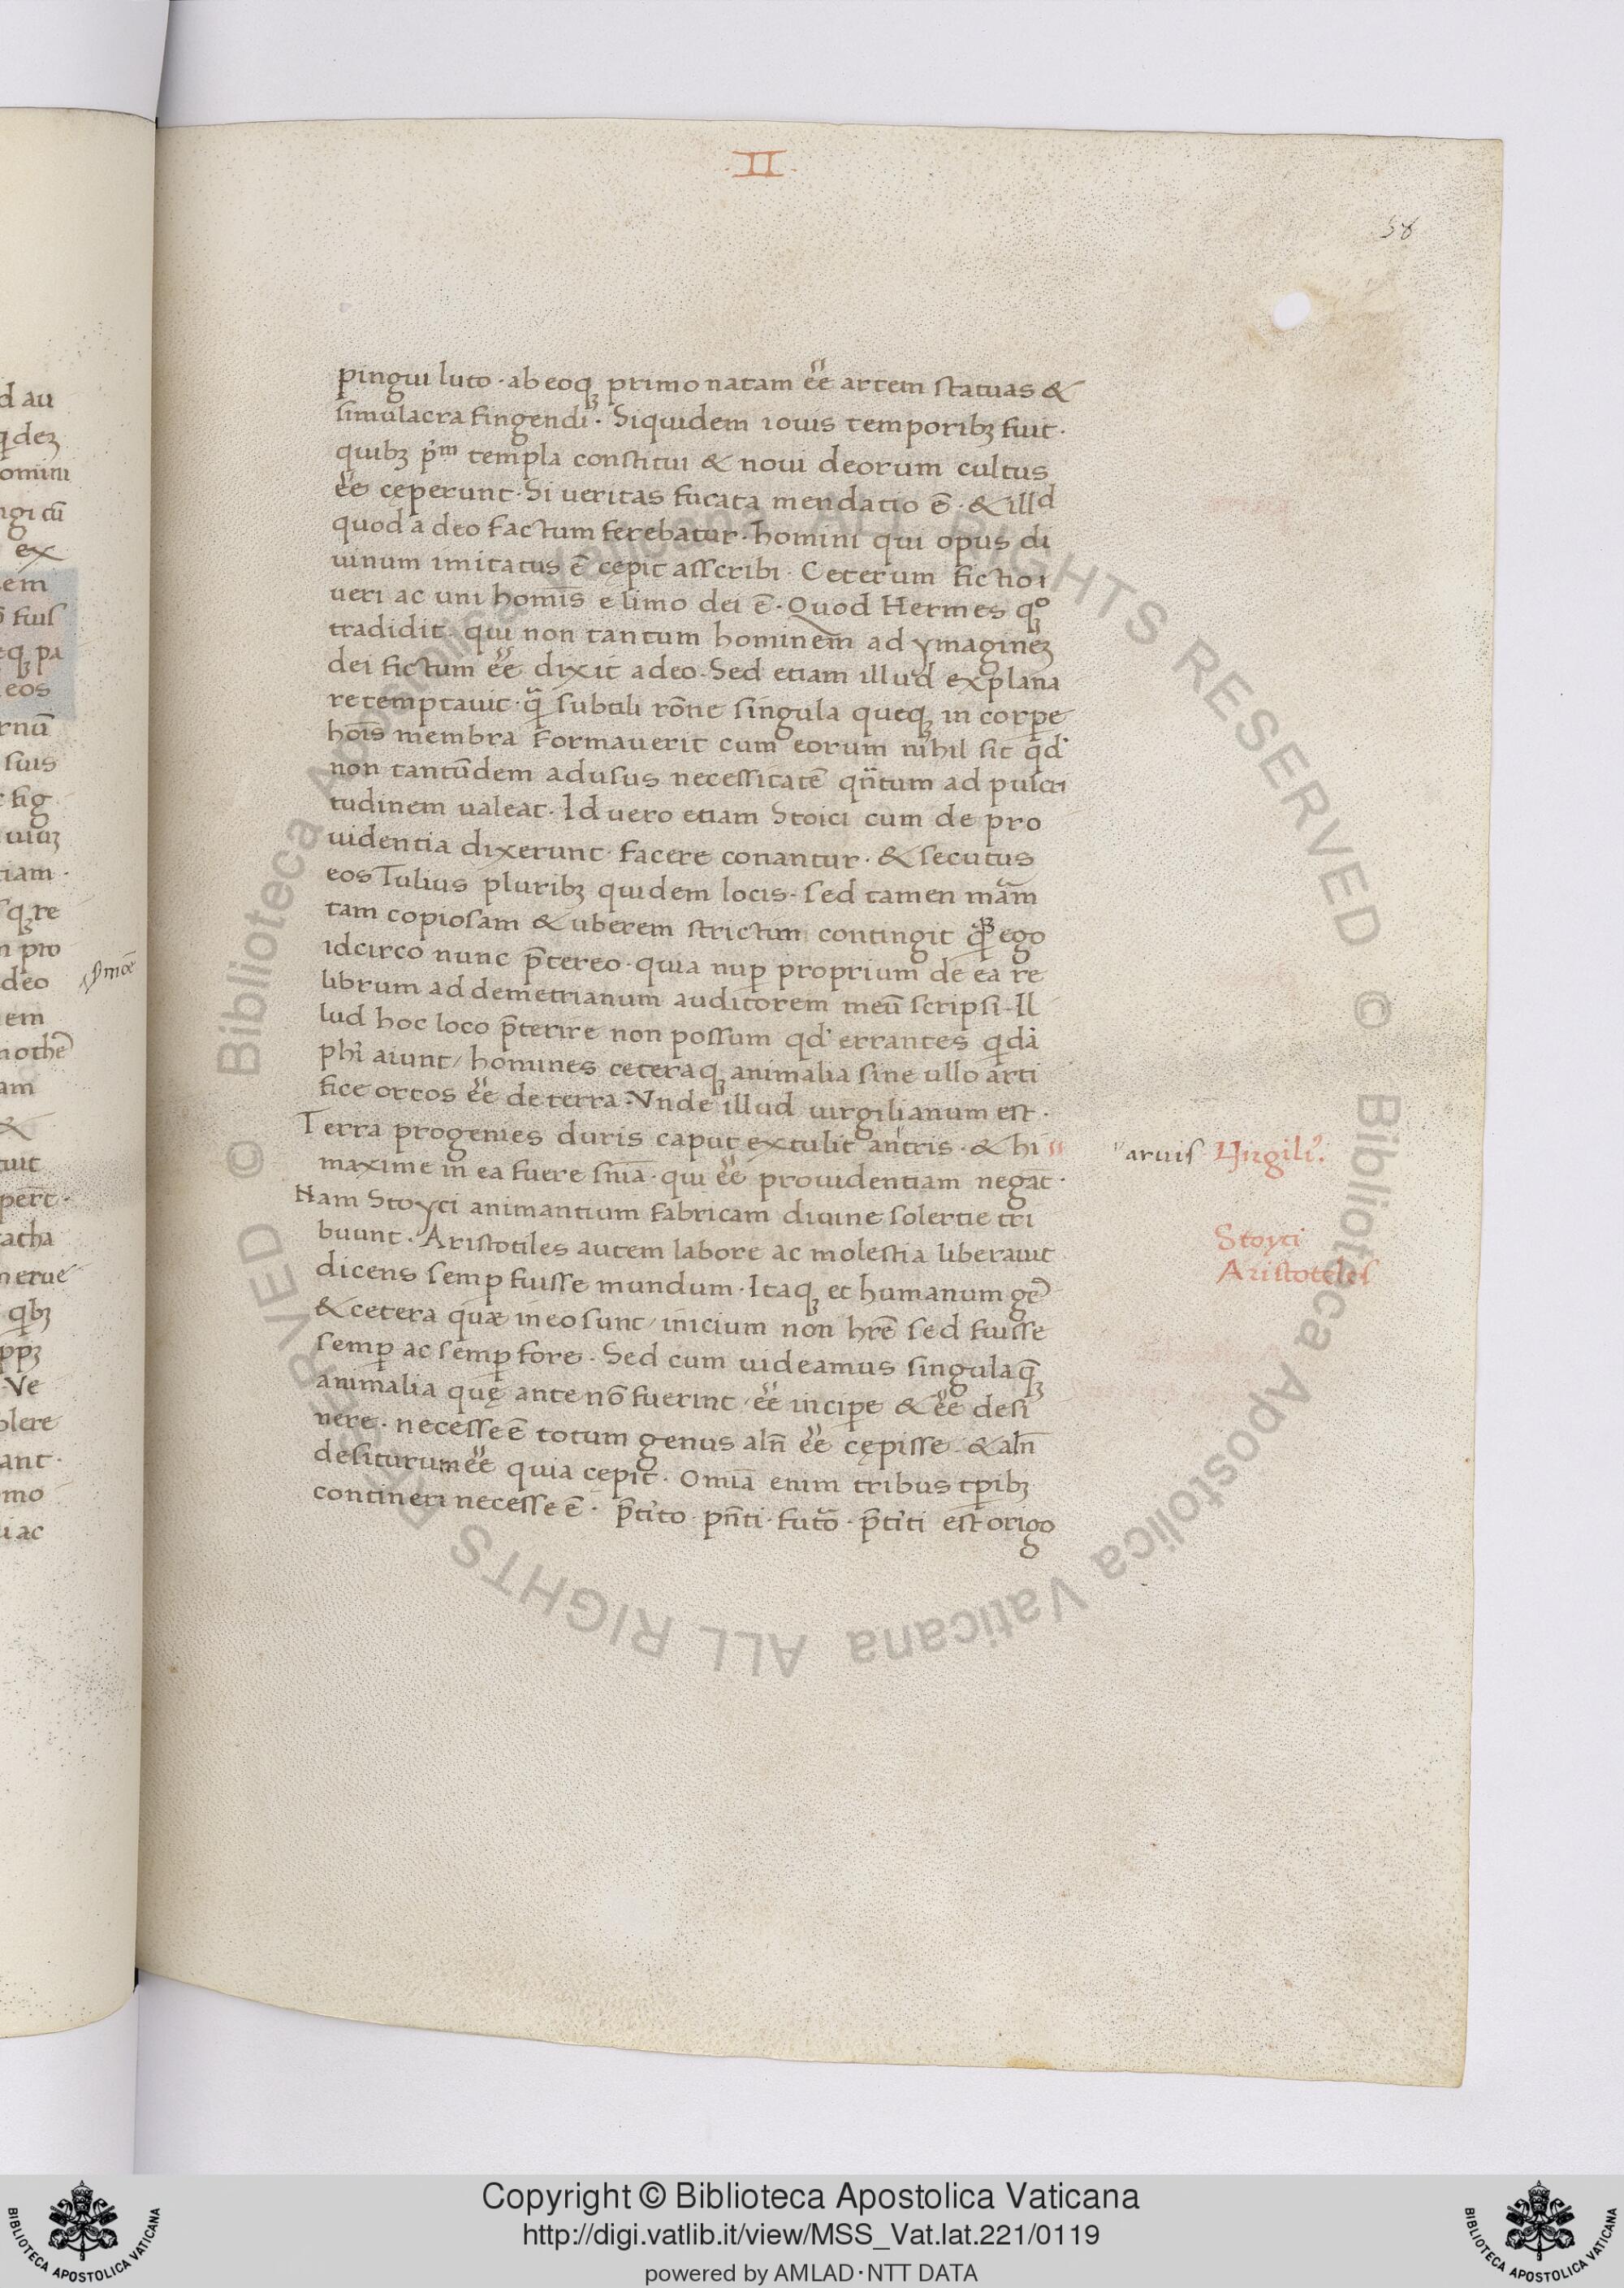 II
58
pingui luto · ab eoqꝫ primo natam ee̅ artem statuas &
simulacra fingendi · Siquidem iouis temporibꝫ fuit ·
quibꝫ pͥm templa constitui & noui deorum cultus
ee̅ cęperunt · Si ueritas fucata mendatio e̅ · & illd
quod a deo factum ferebatur · homini qui opus di
uinum imitatus e̅ cępit asscribi · Ceterum fictio
ueri ac uiui homi̅s e limo dei e̅ · Quod Hermes qꝫo
tradidit · qui non tantum hominem ad ymagineꝫ
dei fictum ee̅ dixit a deo · Sed etiam illud explana
re temptauit · qͣ subtili ro̅ne singula queqꝫ in corpe
hoi̅s membra formauerit cum eorum nihil sit qd'
non tantu̅dem ad usus necessitate̅ qn̅tum ad pulcri
tudinem ualeat · Id uero etiam Stoici cum de pro
uidentia dixerunt · facere conantur · & secutus
eos Tulius pluribꝫ quidem locis · sed tamen mam̅
tam copiosam & uberem strictim contingit qͣꝫ ego
idcirco nunc p̅tereo · quia nup̱ proprium de ea re
librum ad demetrianum auditorem meu̅ scripsi · Il
lud hoc loco p̅terire non possum qd' errantes qͥda̅
phi̅ aiunt / homines ceteraqꝫ animalia sine ullo arti
fice ortos ee̅ de terra · Vnde illud uirgilianum est ·
Terra progenies duris caput extulit antris · & hi
maxime in ea fuere sn̅ia · qui ee̅ prouidentiam negat̅ ·
Nam Stoyci animantium fabricam diuine solertie tri
buunt · Aristotiles autem labore ac molestia liberauit
dicens semp̱ fuisse mundum · Itaqꝫ et humanum ge̅
& cetera quæ in eo sunt / inicium non hr̅e sed fuisse
semp̱ ac semp̱ fore · Sed cum uideamus singula qꝫ̅
animalia quę ante no̅ fuerint / ee̅ incipe & ee̅ desi
nere · necesse e̅ totum genus aln̅ ee̅ cępisse · & aln̅
desiturum ee̅ quia cepit · Omia̅ enim tribus tp̱ibꝫ
contineri necesse e̅ · p̅tito · pn̅ti · futo̅ · p̅titi est origo
aruis Virgili9.
Stoyci
Aristoteles
Copyright © Biblioteca Apostolica Vaticana
http://digi.vatlib.it/view/MSS_Vat.lat.221/0119
powered by AMLAD·NTT DATA
BIBLIOTECA APOSTOLICA VATICANA
BIBLIOTECA APOSTOLICA VATICANA
© Biblioteca Apostolica Vaticana ALL RIGHTS RESERVED
© Biblioteca Apostolica Vaticana ALL RIGHTS RESERVED